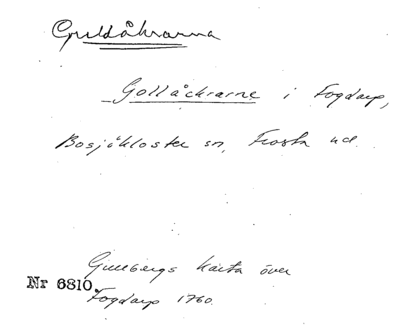 Guldåkrarna
Gollåckrarne i Fogdarp,
Bosjökloster sn, Frosta hd
Gillbergs karta över
Nr 6810.
Fogdarp 1760.